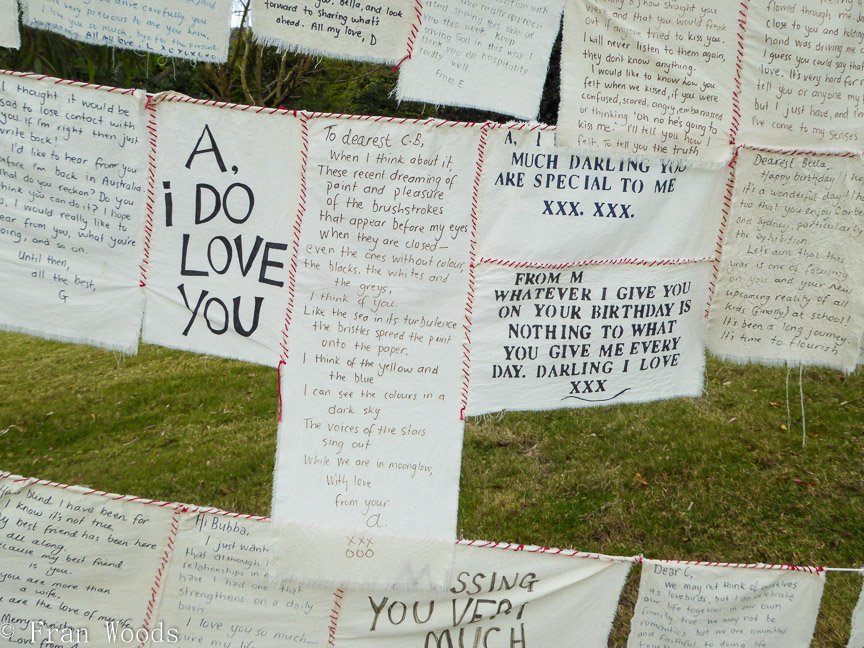 drive carefully you
very precious to me you know
you so much, bye for the present
All my love, L xxx
you, Bella, and look
to sharing what's
ahead. All my love, D
this week. Keep
saving God in this way I
think we do hospitality
really well.
From E
were, and that you would freak
out if anyone tried to kiss you.
I will never listen to them again,
they don't know anything.
I would like to know how you
felt when we kissed, if you were
confused, scared, angry, embarrassed
or thinking 'oh no he's going to
kiss me'. I'll tell you how I
felt. To tell you the truth
flowed through me
close to you and holding
hand was driving me
I guess you could say that
love. It's very hard for
tell you or anyone my
but I just have, and I
I've come to my senses
I thought it would be
sad to lose contact with
you. If I'm right then just
write back!
I'd like to hear from you
before I'm back in Australia.
What do you reckon? Do you
think you can do it? I hope
so, I would really like to
hear from you, what you're
doing, and so on.
Until then,
all the best,
G
A,
i DO
LOVE
YOU
To dearest C.B,
When I think about it,
These recent dreaming of
paint and pleasure
of the brushstrokes
that appear before my eyes
when they are closed—
even the ones without colour
the blacks, the whites and
the greys,
I think of you.
Like the sea in its turbulence
the bristles spread the paint
onto the paper.
I think of the yellow and
the blue
I can see the colours in a
dark sky
The voices of the stars
sing out
While we are in moonglow,
With love
from your
a.
xxx
ooo
A, I
MUCH DARLING YOU
ARE SPECIAL TO ME
XXX. XXX.
FROM M
WHATEVER I GIVE YOU
ON YOUR BIRTHDAY IS
NOTHING TO WHAT
YOU GIVE ME EVERY
DAY. DARLING I LOVE
XXX
Dearest Bella,
Happy birthday! I
it's a wonderful day
too that you enjoy
and Sydney particularly
the exhibition.
Let's aim that this
year is one of focusing
on you and your new
upcoming reality of all
kids (finally) at school!
It's been a long journey.
It's time to flourish
blind I have been for
I know it's not true,
My best friend has been here
all along,
because my best friend
is you.
you are more than
a wife,
you are the love of my life
Merry Christmas
Love from
Hi Bubba,
I just want
that although
relationships in
have I had one that
strengthens on a daily
basis.
I love you so much—
sure my life
MISSING
YOU VERY
MUCH
Dear C,
we may not think of ourselves
as lovebirds, but I do celebrate
our life together in our own
family tree. We may not be
romantics but we are committed
and faithful to doing life
© Fran Woods